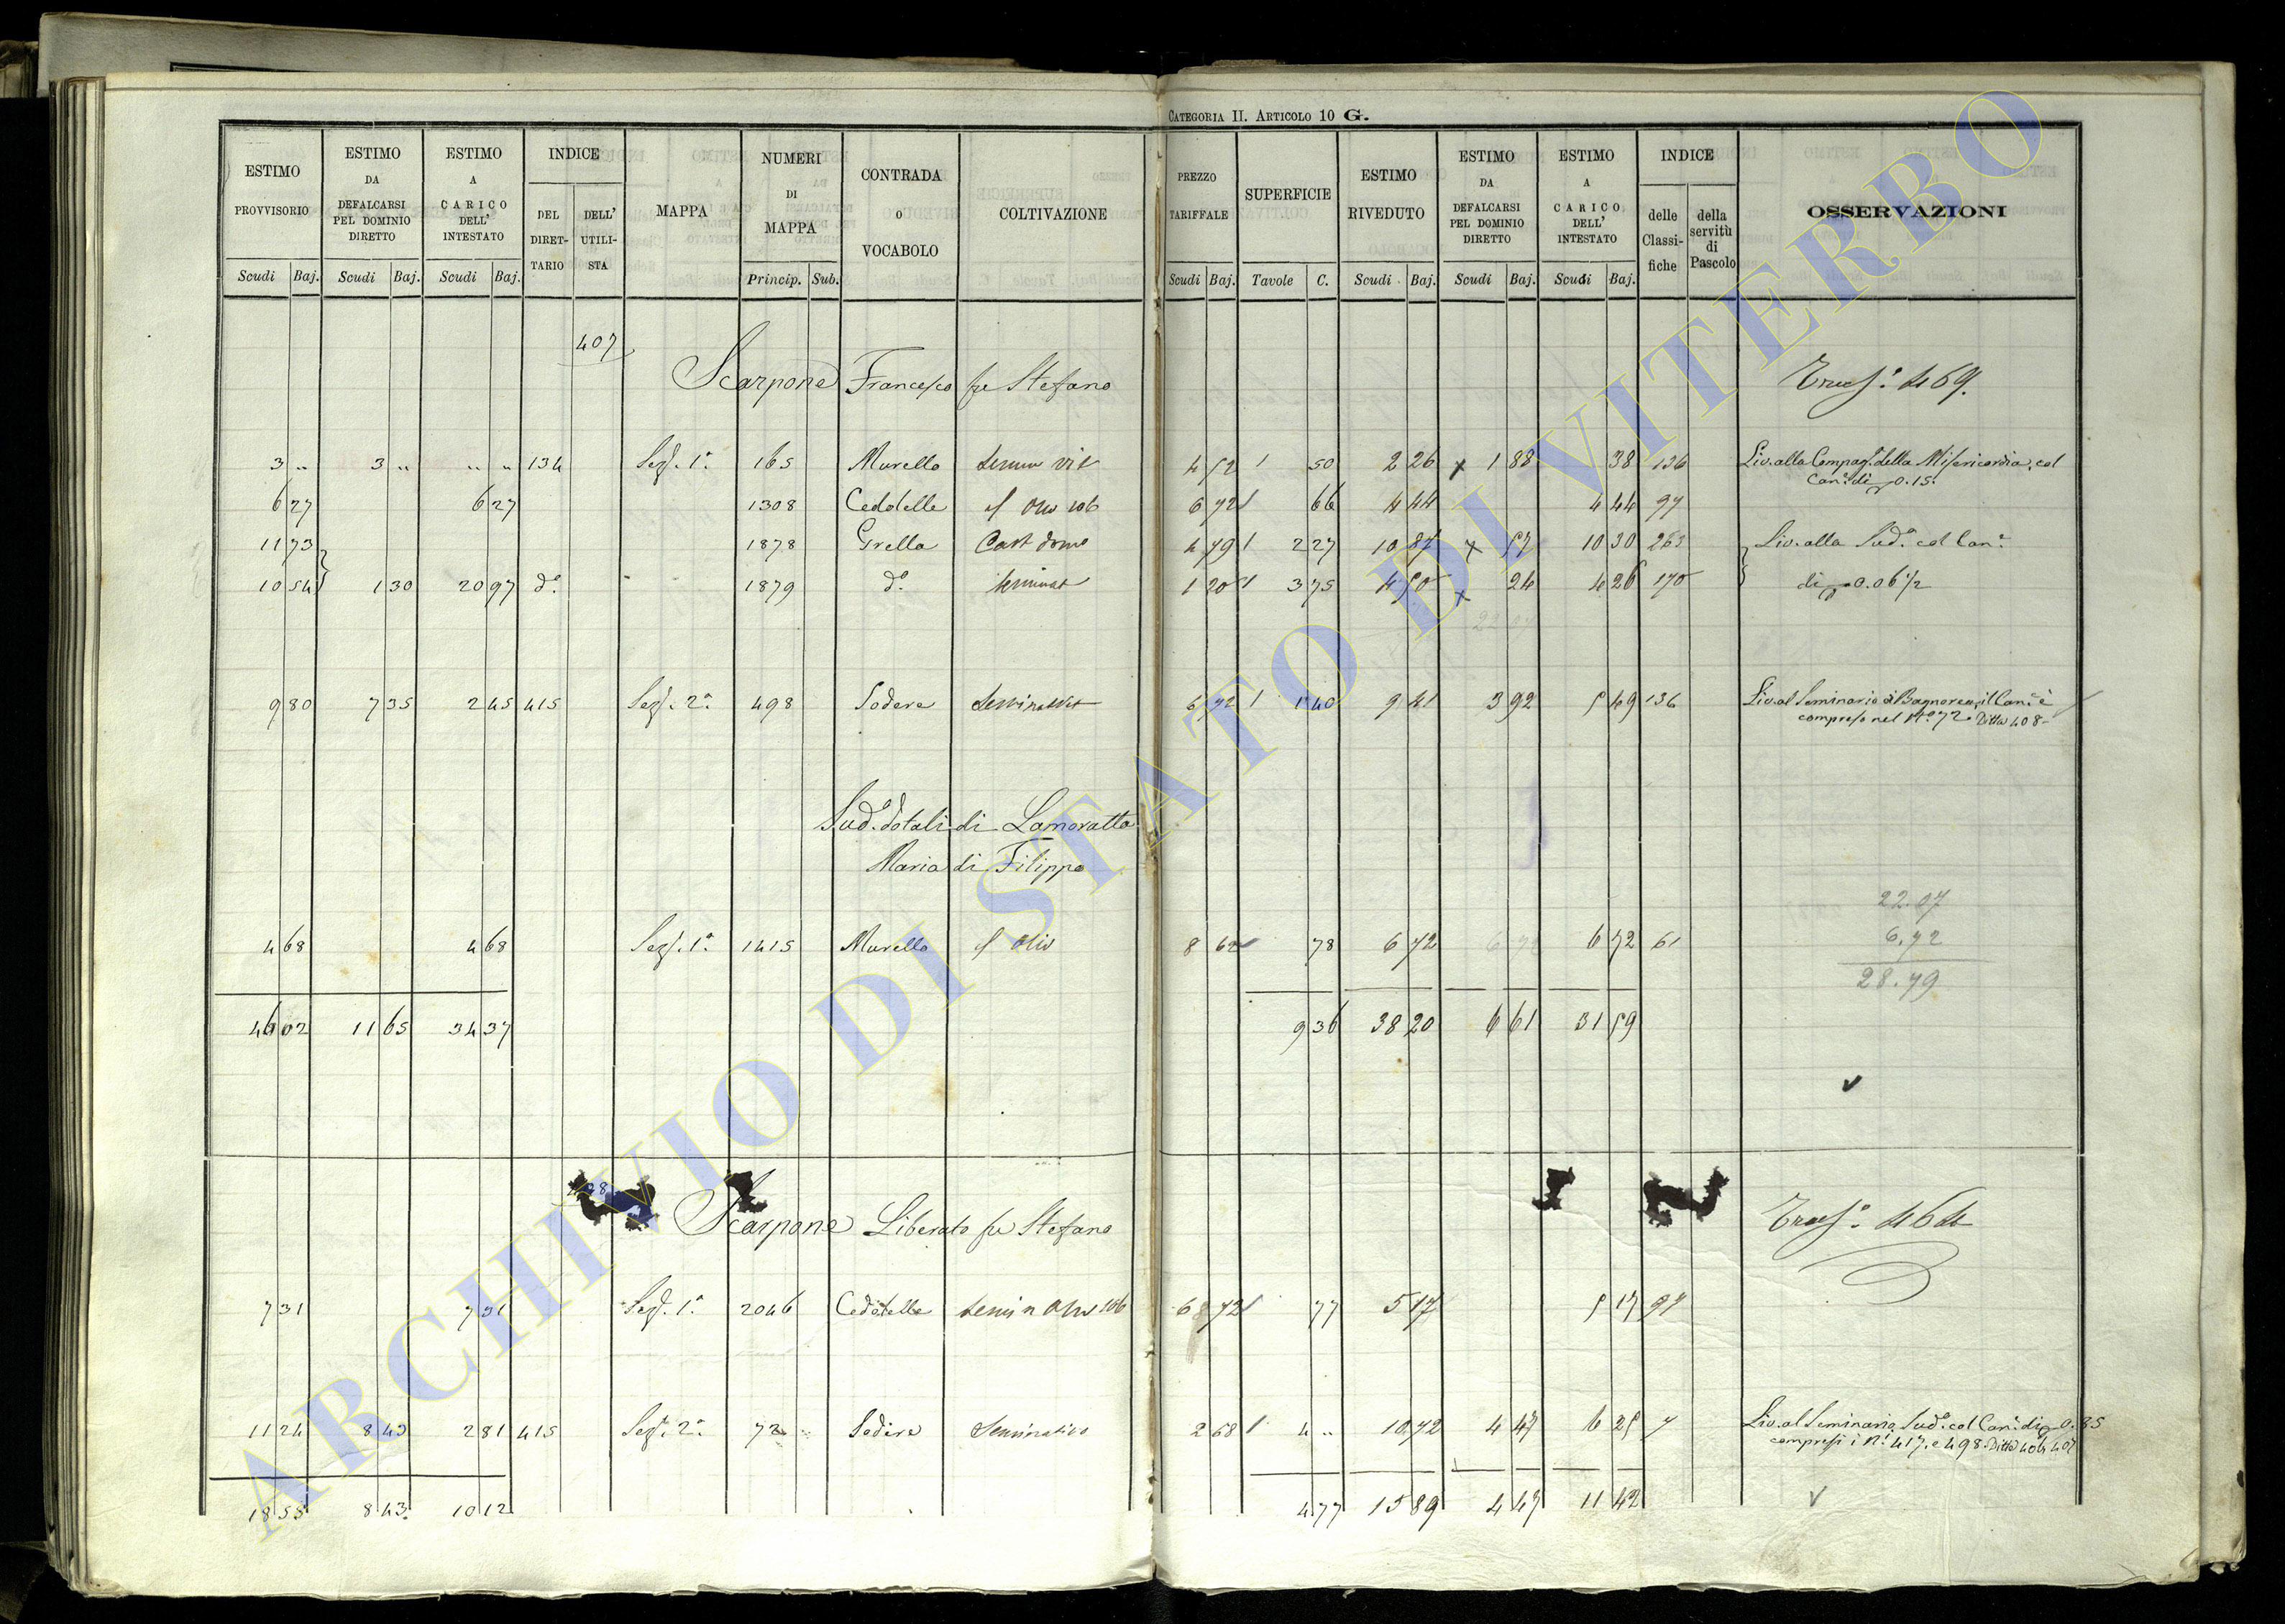 CATEGORIA II. ARTICOLO 10 G.
ESTIMO PROVVISORIO Scudi Baj. ESTIMO DA DEFALCARSI PEL DOMINIO DIRETTO Scudi Baj. ESTIMO A CARICO DELL' INTESTATO Scudi Baj. INDICE DEL DIRET- TARIO DELL' UTILI- STA MAPPA NUMERI DI MAPPA Princip. Sub. CONTRADA O VOCABOLO COLTIVAZIONE PREZZO TARIFFALE Scudi Baj. SUPERFICIE Tavole C. ESTIMO RIVEDUTO Scudi Baj. ESTIMO DA DEFALCARSI PEL DOMINIO DIRETTO Scudi Baj. ESTIMO A CARICO DELL' INTESTATO Scudi Baj. INDICE delle Classi- fiche della servitù di Pascolo OSSERVAZIONI
407
Scarpone Francesco fu Stefano 469.
3 „ 3 „ „ „ 134 Sez. 1a 165 Murello vit 4 52 1 50 2 26 x 1 88 38 136 Liv. alla Compag. della Misericordia, col
Can. di 0.15.
6 27 6 27 1308 Cedotelle 6 72 66 4 44 4 44 97
11 73 1878 Grella Cast 4 79 2 27 10 87 x 57 10 30 263 Liv. alla Sud.a col Can.e
10 54 1 30 20 97 d.o 1879 d.o seminat 1 20 3 75 4 50 x 24 4 26 170 di 0.06 1/2
22 07
9 80 7 35 2 45 415 Sez. 2a 498 Sodere 6 72 1 40 9 41 3 92 5 49 136 Liv. al Seminario di Bagnorea, il Can.e è
compreso nel N.o 72. Ditta 408
Sud.o dotali di Lamoratta
Maria di Filippo
22.07
4 68 4 68 Sez. 1a 1415 Murello Oliv 8 62 78 6 72 6 72 6 72 61 6.72
28.79
46 02 11 65 34 37 9 36 38 20 6 61 31 59
Scarpone Liberato fu Stefano 464
7 31 7 31 Sez. 1a 2046 Cedotelle 6 72 77 5 17 5 17 97
11 24 8 43 2 81 415 Sez. 2a 72 Sodere Seminativo 2 68 4 „ 10 72 4 47 6 25 7 Liv. al Seminario Sud.o col Can. di 0.85
compresi i N.i 417. e 498. Ditta 404 407
18 55 8 43 10 12 4 77 15 89 4 47 11 42
ARCHIVIO DI STATO DI VITERBO